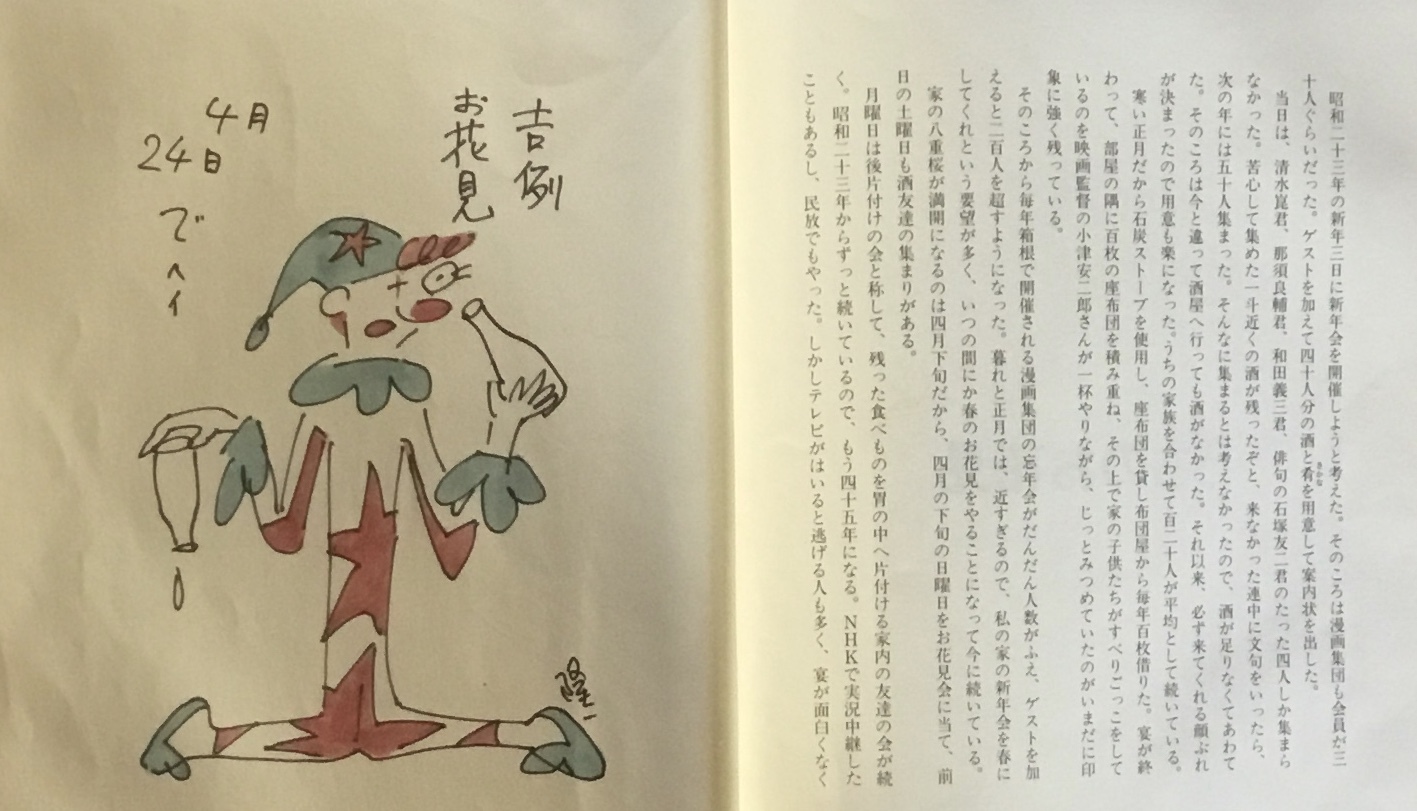 吉例
お花見
4月
24日
でヘイ
隆一
昭和二十三年の新年三日に新年会を開催しようと考えた。そのころは漫画集団も会員が三
十人ぐらいだった。ゲストを加えて四十人分の酒と肴を用意して案内状を出した。
さかな
当日は、清水崑君、那須良輔君、和田義三君、俳句の石塚友二君のたった四人しか集まら
なかった。苦心して集めた一斗近くの酒が残ったぞと、来なかった連中に文句をいったら、
次の年には五十人集まった。そんなに集まるとは考えなかったので、酒が足りなくてあわて
た。そのころは今と違って酒屋へ行っても酒がなかった。それ以来、必ず来てくれる顔ぶれ
が決まったので用意も楽になった。うちの家族を合わせて百二十人が平均として続いている。
寒い正月だから石炭ストーブを使用し、座布団を貸し布団屋から毎年百枚借りた。宴が終
わって、部屋の隅に百枚の座布団を積み重ね、その上で家の子供たちがすべりごっこをして
いるのを映画監督の小津安二郎さんが一杯やりながら、じっとみつめていたのがいまだに印
象に強く残っている。
そのころから毎年箱根で開催される漫画集団の忘年会がだんだん人数がふえ、ゲストを加
えると二百人を超すようになった。暮れと正月では、近すぎるので、私の家の新年会を春に
してくれという要望が多く、いつの間にか春のお花見をやることになって今に続いている。
家の八重桜が満開になるのは四月下旬だから、四月の下旬の日曜日をお花見会に当て、前
日の土曜日も酒友達の集まりがある。
月曜日は後片付けの会と称して、残った食べものを胃の中へ片付ける家内の友達の会が続
く。昭和二十三年からずっと続いているので、もう四十五年になる。NHKで実況中継した
こともあるし、民放でもやった。しかしテレビがはいると逃げる人も多く、宴が面白くなく